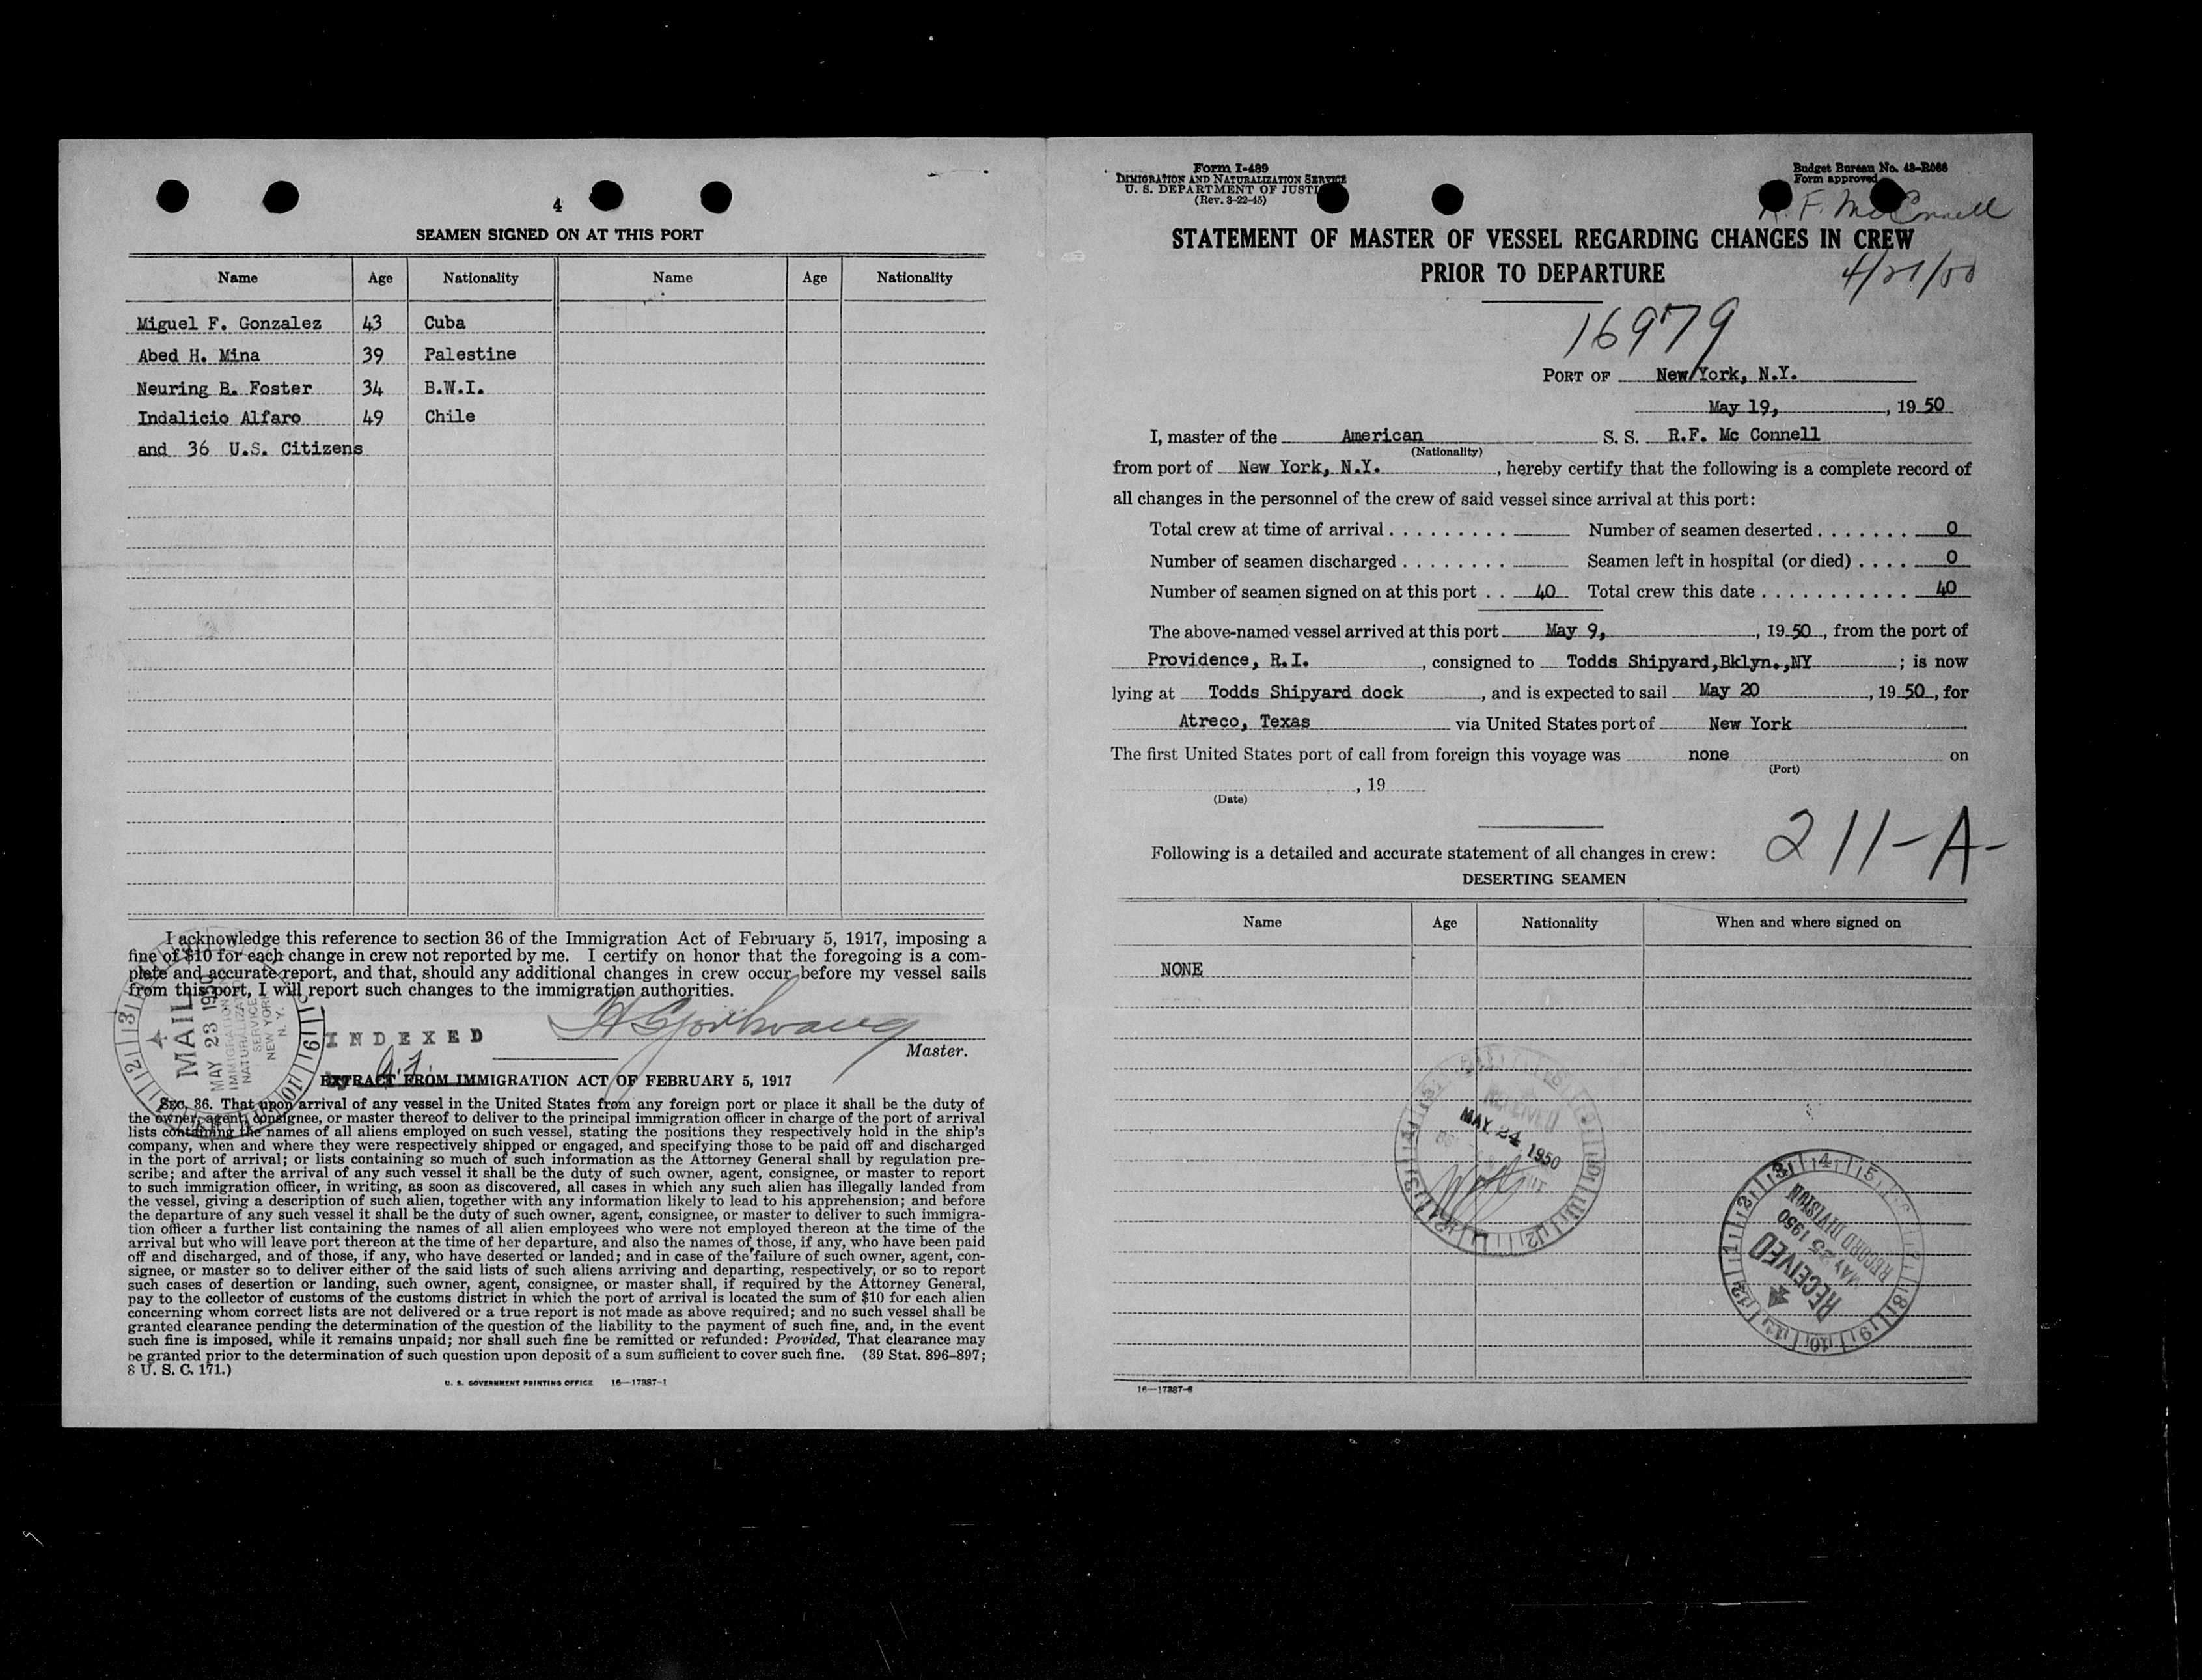 4
SEAMEN SIGNED ON AT THIS PORT
Name Age Nationality Name Age Nationality
Miguel F. Gonzalez 43 Cuba
Abed H. Mina 39 Palestine
Neuring B. Foster 34 B.W.I.
Indalicio Alfaro 49 Chile
and 36 U.S. Citizens
I acknowledge this reference to section 36 of the Immigration Act of February 5, 1917, imposing a
fine of $10 for each change in crew not reported by me. I certify on honor that the foregoing is a com-
plete and accurate report, and that, should any additional changes in crew occur before my vessel sails
from this port, I will report such changes to the immigration authorities.
MAIL
MAY 23 1950
IMMIGRATION
NATURALIZATION
SERVICE
NEW YORK
N. Y.
INDEXED
Master.
EXTRACT FROM IMMIGRATION ACT OF FEBRUARY 5, 1917
SEC. 36. That upon arrival of any vessel in the United States from any foreign port or place it shall be the duty of
the owner, agent, consignee, or master thereof to deliver to the principal immigration officer in charge of the port of arrival
lists containing the names of all aliens employed on such vessel, stating the positions they respectively hold in the ship's
company, when and where they were respectively shipped or engaged, and specifying those to be paid off and discharged
in the port of arrival; or lists containing so much of such information as the Attorney General shall by regulation pre-
scribe; and after the arrival of any such vessel it shall be the duty of such owner, agent, consignee, or master to report
to such immigration officer, in writing, as soon as discovered, all cases in which any such alien has illegally landed from
the vessel, giving a description of such alien, together with any information likely to lead to his apprehension; and before
the departure of any such vessel it shall be the duty of such owner, agent, consignee, or master to deliver to such immigra-
tion officer a further list containing the names of all alien employees who were not employed thereon at the time of the
arrival but who will leave port thereon at the time of her departure, and also the names of those, if any, who have been paid
off and discharged, and of those, if any, who have deserted or landed; and in case of the failure of such owner, agent, con-
signee, or master so to deliver either of the said lists of such aliens arriving and departing, respectively, or so to report
such cases of desertion or landing, such owner, agent, consignee, or master shall, if required by the Attorney General,
pay to the collector of customs of the customs district in which the port of arrival is located the sum of $10 for each alien
concerning whom correct lists are not delivered or a true report is not made as above required; and no such vessel shall be
granted clearance pending the determination of the question of the liability to the payment of such fine, and, in the event
such fine is imposed, while it remains unpaid; nor shall such fine be remitted or refunded: Provided, That clearance may
be granted prior to the determination of such question upon deposit of a sum sufficient to cover such fine. (39 Stat. 896-897;
8 U. S. C. 171.)
U. S. GOVERNMENT PRINTING OFFICE 16—17387-1
Form I-489
IMMIGRATION AND NATURALIZATION SERVICE
U. S. DEPARTMENT OF JUSTI
(Rev. 3-22-45)
Budget Bureau No. 43-R086
Form approved
F. McConnell
STATEMENT OF MASTER OF VESSEL REGARDING CHANGES IN CREW
PRIOR TO DEPARTURE
16979
PORT OF New York, N.Y.
May 19, , 19 50
I, master of the American S. S. R.F. Mc Connell
(Nationality)
from port of New York, N.Y. , hereby certify that the following is a complete record of
all changes in the personnel of the crew of said vessel since arrival at this port:
Total crew at time of arrival . . . . . . . . . Number of seamen deserted . . . . . . . 0
Number of seamen discharged . . . . . . . . Seamen left in hospital (or died) . . . . 0
Number of seamen signed on at this port . . 40 Total crew this date . . . . . . . . . . . 40
The above-named vessel arrived at this port May 9, , 19 50 , from the port of
Providence, R.I. , consigned to Todds Shipyard,Bklyn.,NY ; is now
lying at Todds Shipyard dock , and is expected to sail May 20 , 19 50 , for
Atreco, Texas via United States port of New York
The first United States port of call from foreign this voyage was none on
(Port)
, 19
(Date)
211-A-
Following is a detailed and accurate statement of all changes in crew:
DESERTING SEAMEN
Name Age Nationality When and where signed on
NONE
RECEIVED
MAY 24 1950
RECEIVED
MAY 25 1950
RECORD DIVISION
16—17387-6